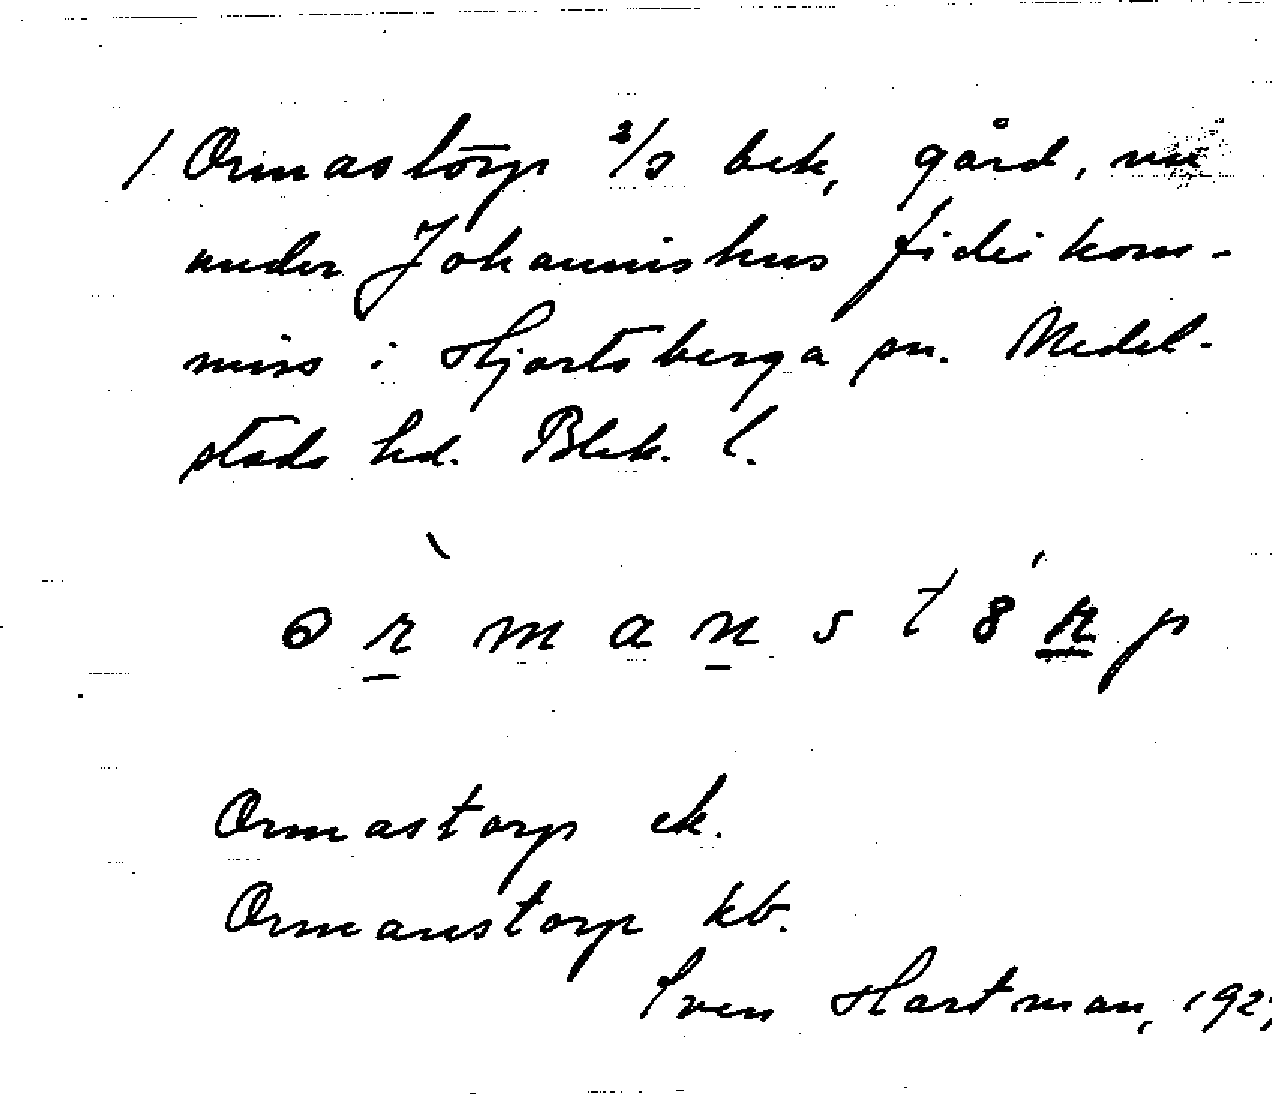 / Ormastorp 2/3 bek, gård, nu
under Johannishus fideikom-
miss i Hjortsberga sn. Medel-
stads hd. Blek. l.
ormanstörp
Ormastorp ek.
Ormanstorp kb.
Sven Hartman, 192